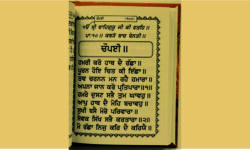 ੴ ਵਾਹਿਗੁਰੂ ਜੀ ਕੀ ਫਤਹਿ॥
ਪਾ: ੧੦॥ ਕਬਯੋ ਬਾਚ ਬੇਨਤੀ॥
ਚੌਪਈ॥
ਹਮਰੀ ਕਰੋ ਹਾਥ ਦੈ ਰੱਛਾ॥
ਪੂਰਨ ਹੋਇ ਚਿਤ ਕੀ ਇੱਛਾ॥
ਤਵ ਚਰਨਨ ਮਨ ਰਹੈ ਹਮਾਰਾ॥
ਅਪਨਾ ਜਾਨ ਕਰੋ ਪ੍ਰਤਿਪਾਰਾ॥੧॥
ਹਮਰੇ ਦੁਸਟ ਸਭੈ ਤੁਮ ਘਾਵਹੁ॥
ਆਪੁ ਹਾਥ ਦੈ ਮੋਹਿ ਬਚਾਵਹੁ॥
ਸੁਖੀ ਬਸੈ ਮੋਰੋ ਪਰਿਵਾਰਾ॥
ਸੇਵਕ ਸਿੱਖ ਸਭੈ ਕਰਤਾਰਾ॥੨॥
ਮੋ ਰੱਛਾ ਨਿਜ ਕਰ ਦੈ ਕਰਿਯੈ॥